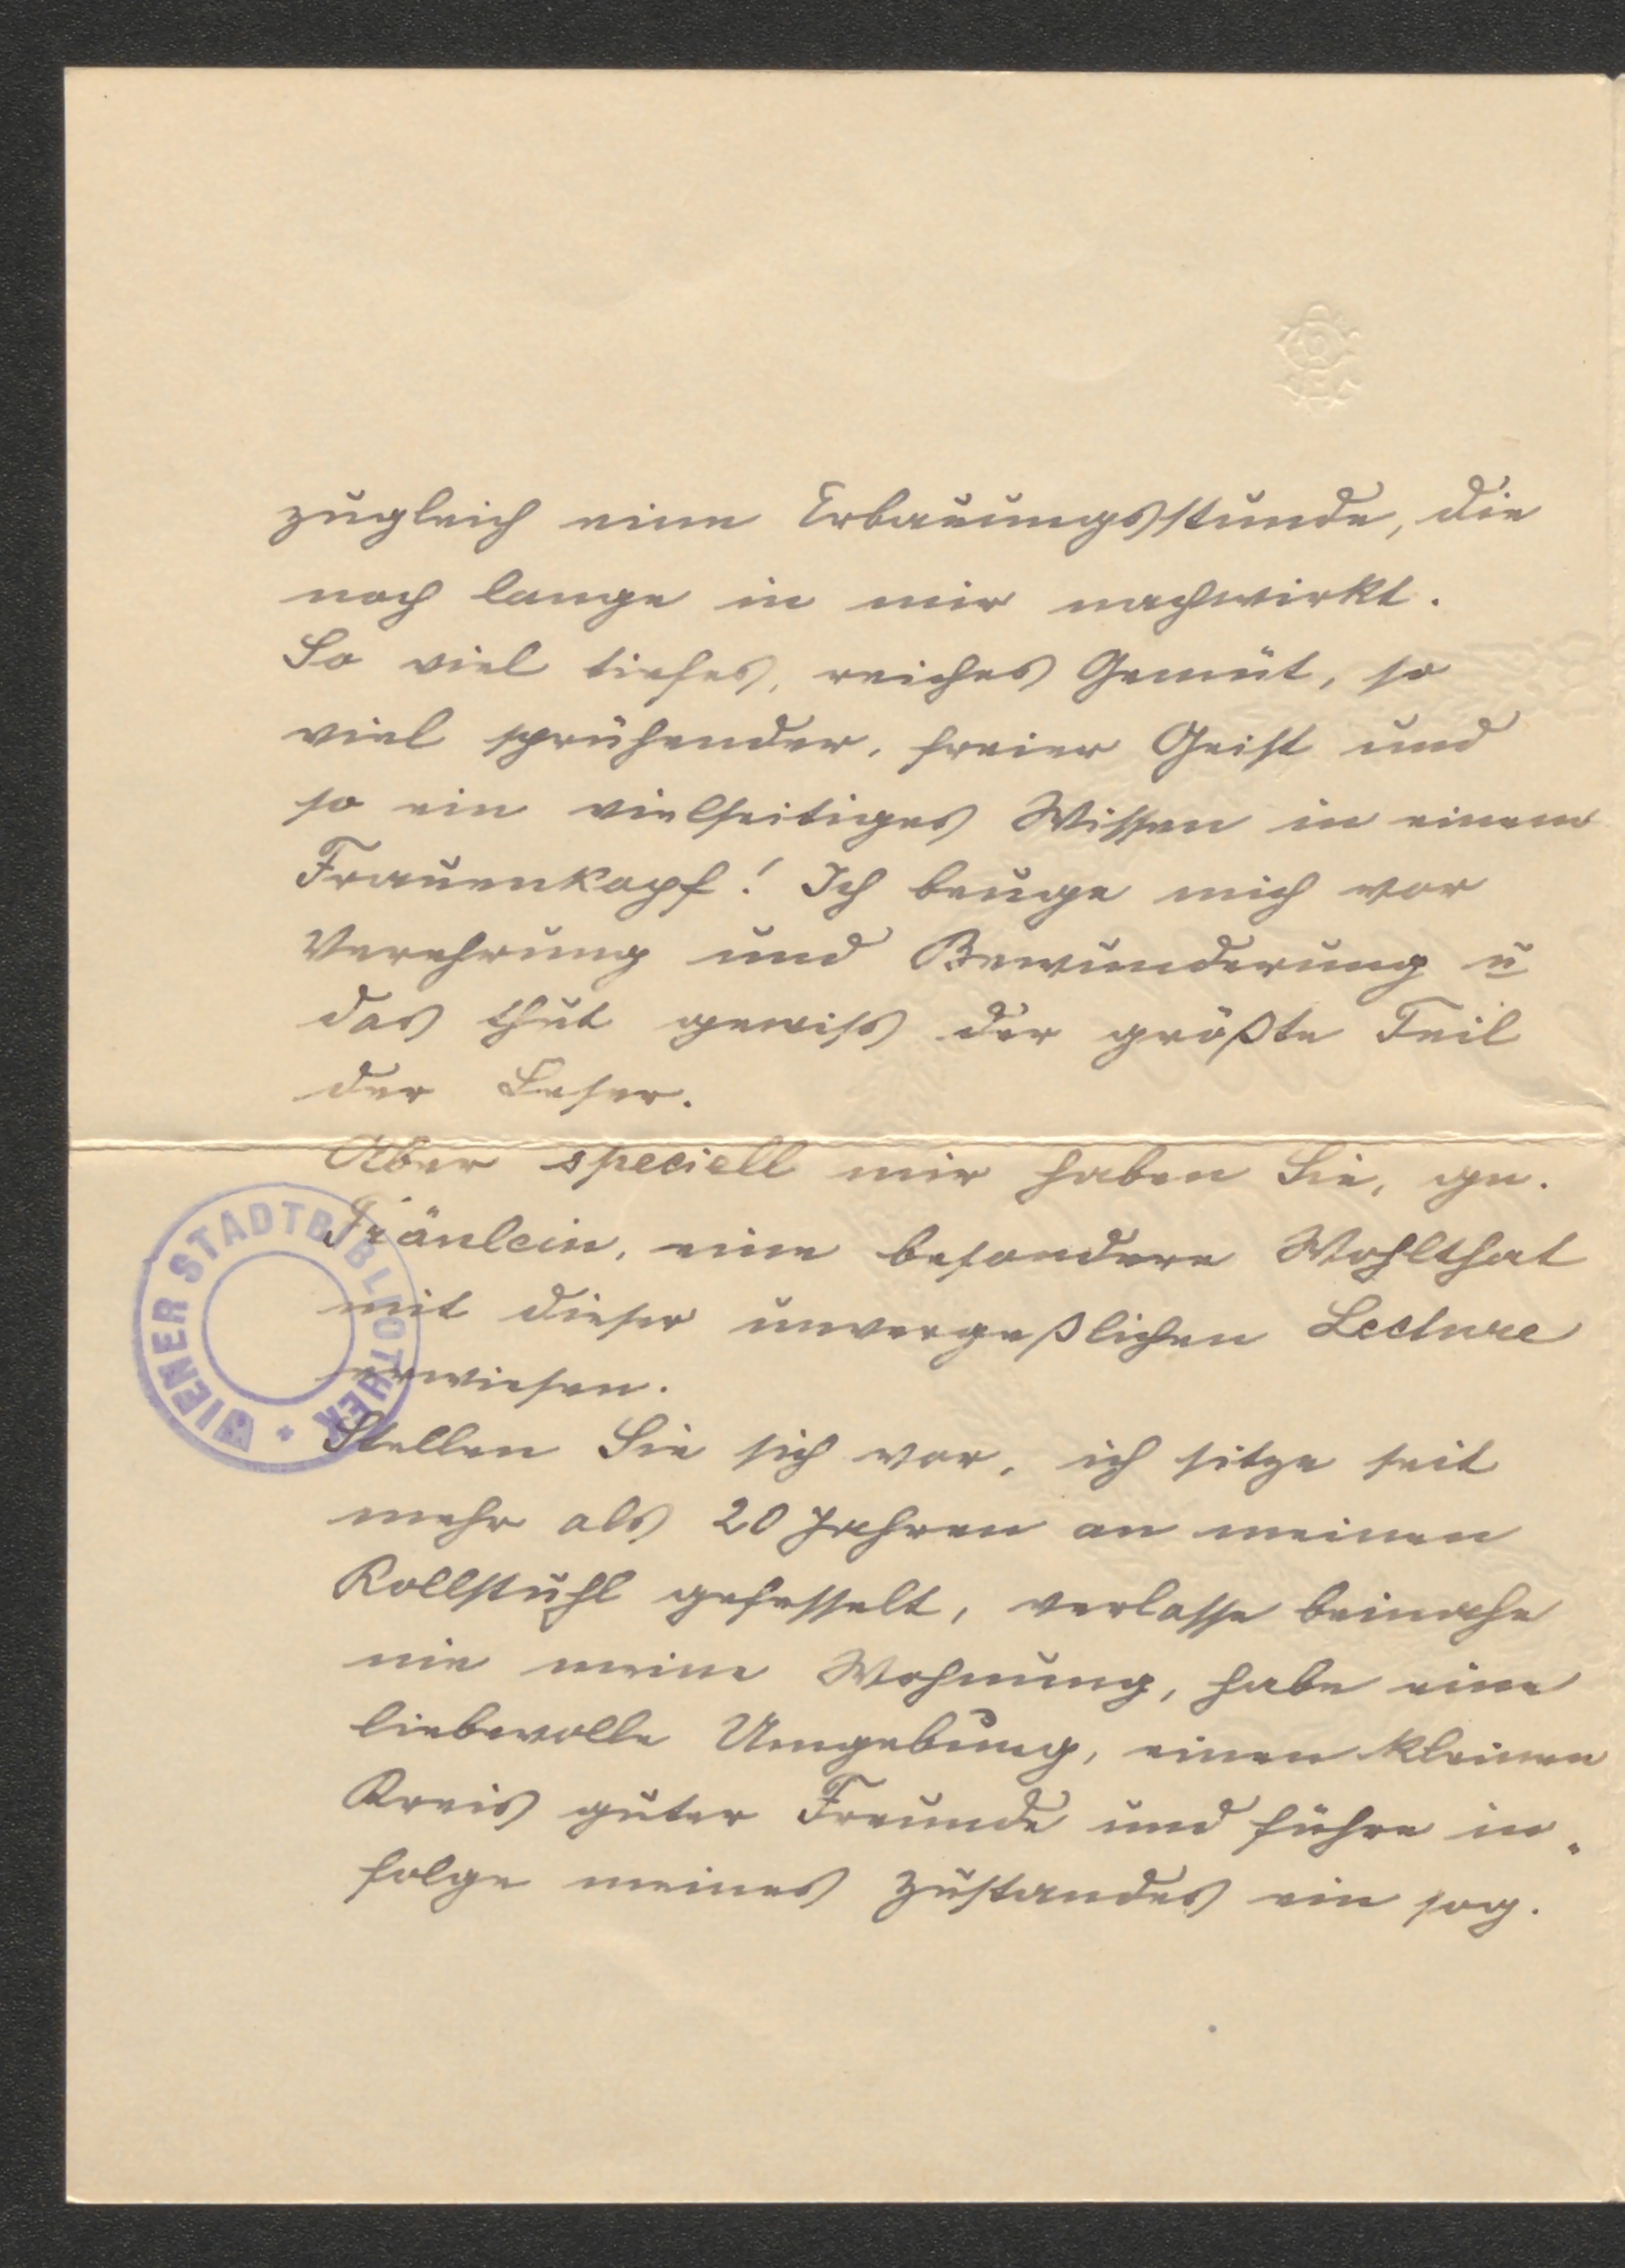 zugleich eine Erbauungsstunde, die
noch lange in mir nachwirkt.
So viel tiefes, reiches Gemüt, so
viel sprühender, freier Geist und
so ein vielseitiges Wissen in einem
Frauenkopf! Ich beuge mich vor
Verehrung und Bewunderung u
das thut gewiss der größte Teil
der Leser.
Aber speciell mir haben Sie, gn.
Fräulein, eine besondere Wohlthat
mit dieser unvergeßlichen Lecture
erwiesen.
Stellen Sie sich vor, ich sitze seit
mehr als 20 Jahren an meinen
Rollstuhl gefesselt, verlasse beinahe
nie meine Wohnung, habe eine
liebevolle Umgebung, einen kleinen
Kreis guter Freunde und führe in-
folge meines Zustandes ein sog.
WIENER STADTBIBLIOTHEK *